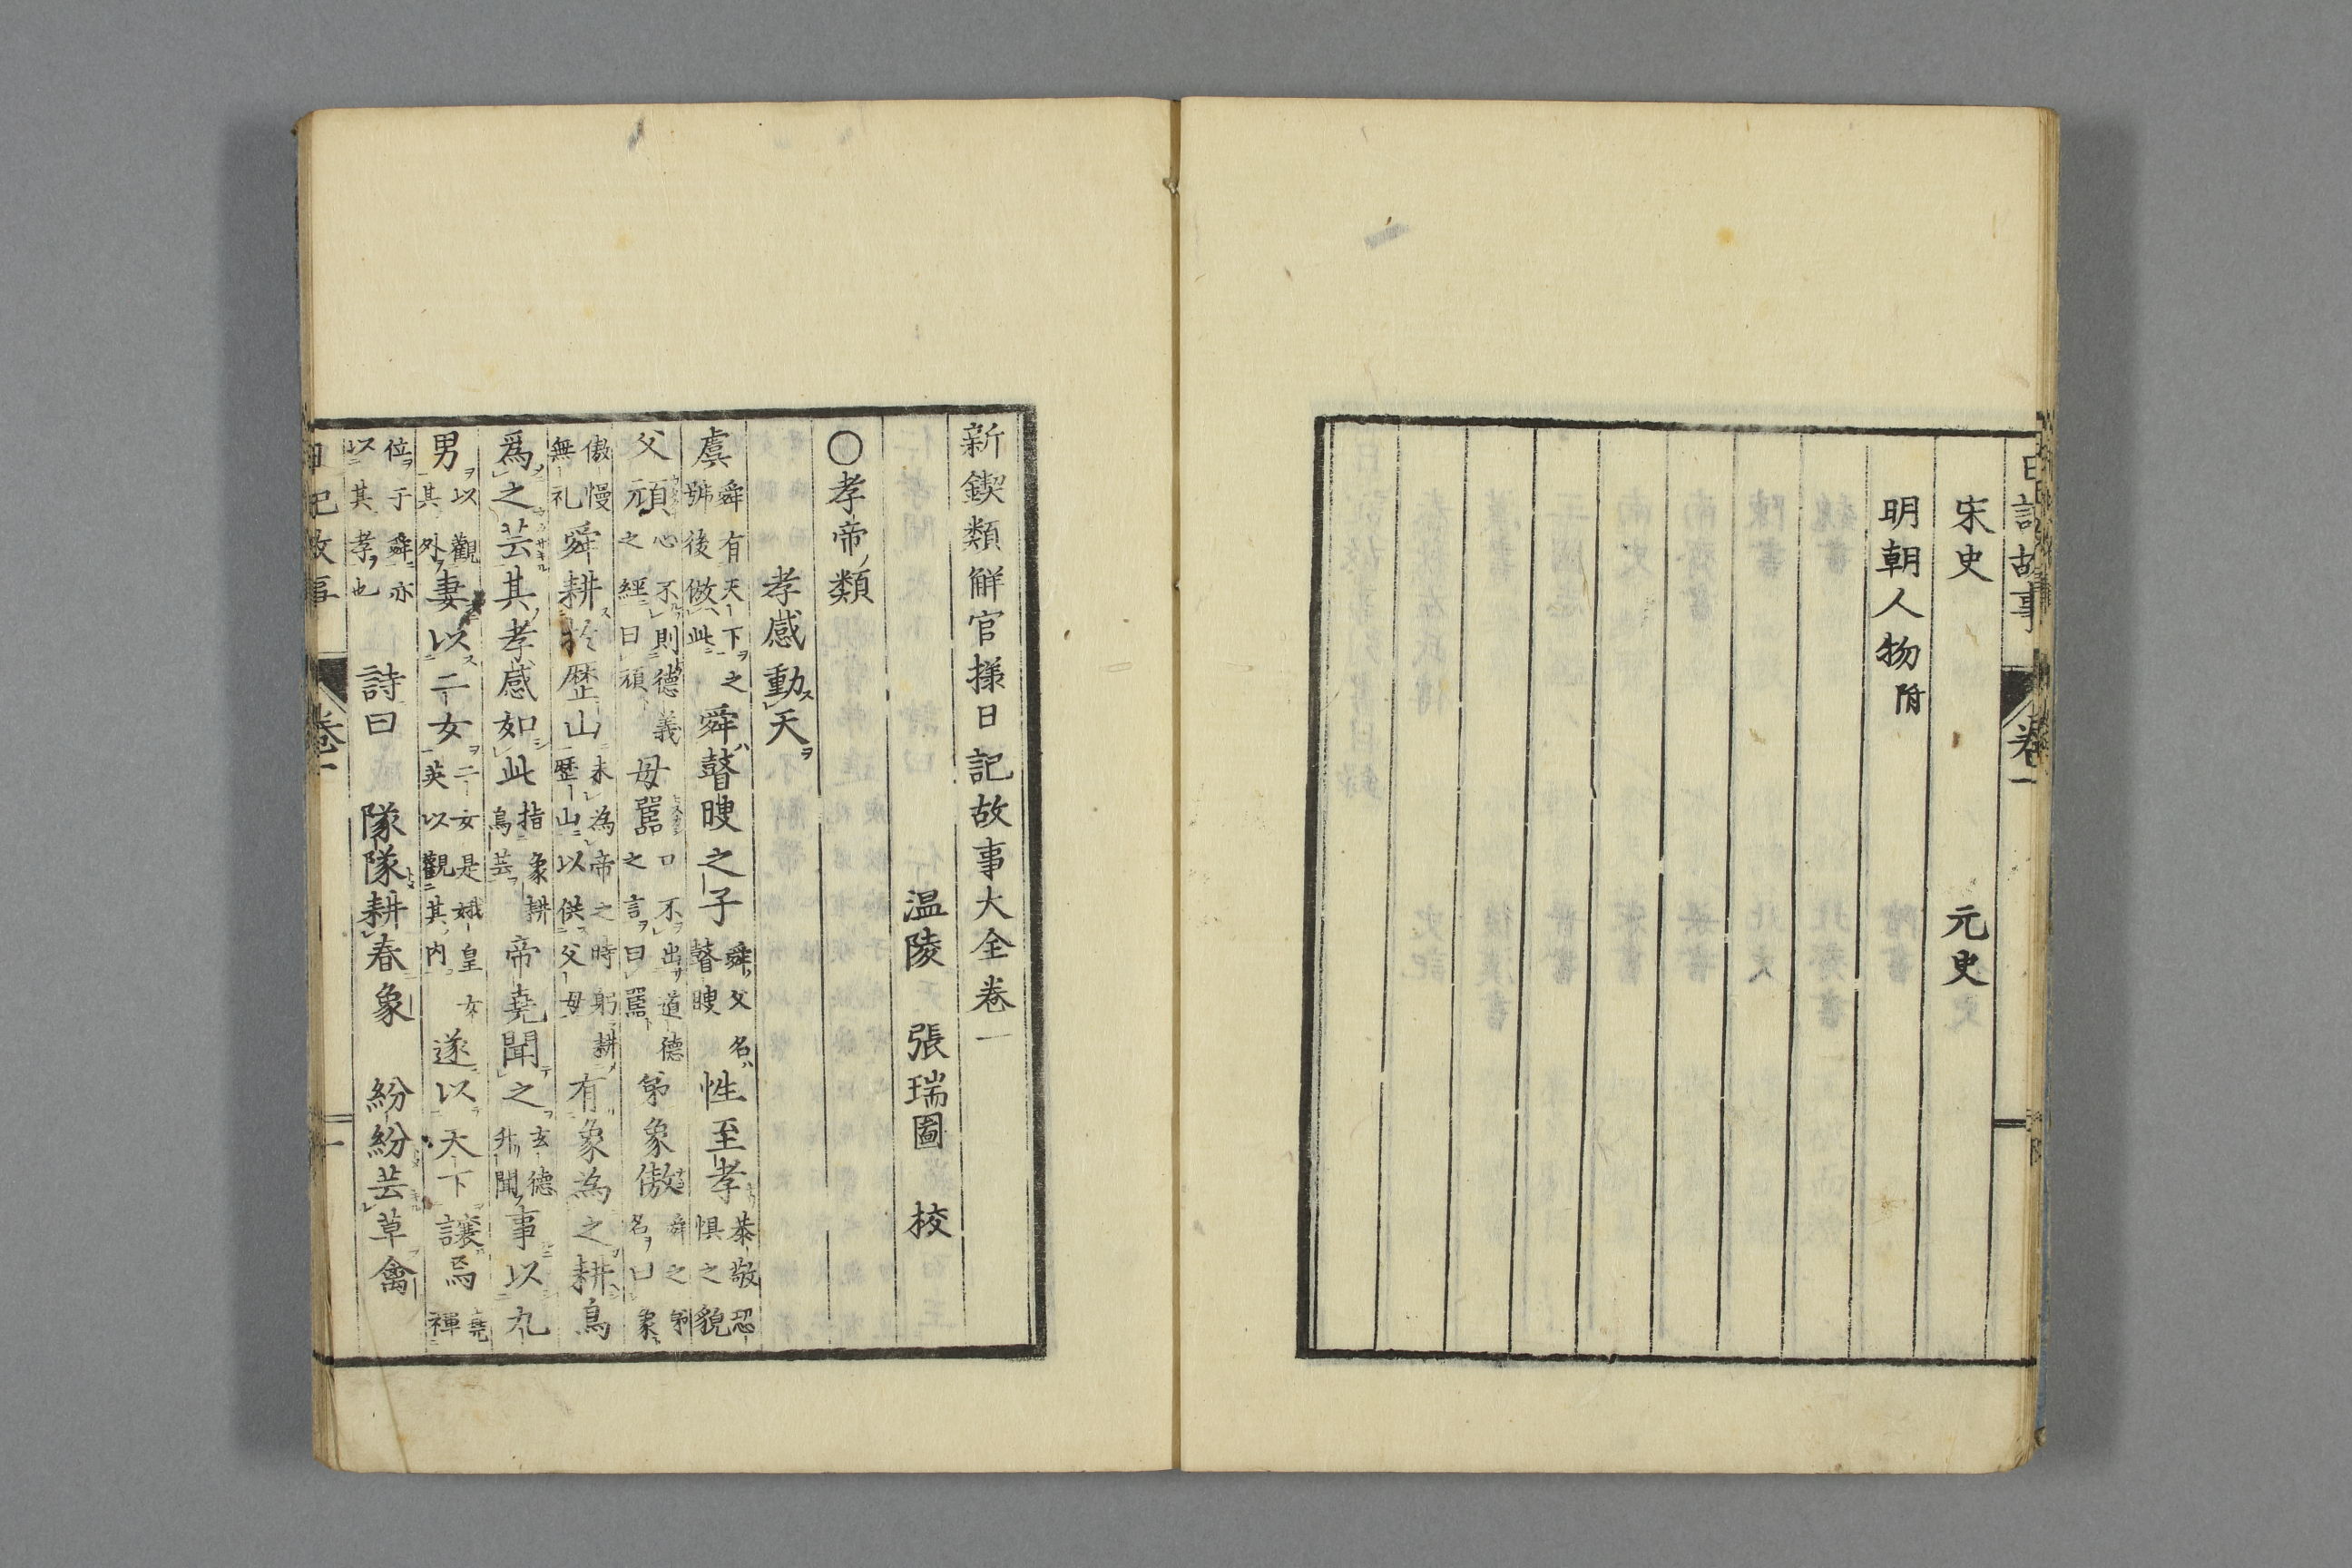 日記故事 卷一
宋史 元史
明朝人物附
新鍥類觧官様日記故事大全卷一
温陵 張瑞圖 校
〇孝帝ノ類
孝感動スレ天ヲ
虞舜有天下之號後倣此舜瞽瞍之子舜父名瞽瞍性至孝恭敬恐惧之貌
父頑心不則德義之經曰頑母嚚口不出道德之言曰嚚弟象傲舜之弟名曰象
傲慢無礼舜耕於歴山未為帝之時躬耕歴山以供父母有象為之耕鳥
爲之芸其孝感如此指象耕鳥芸帝堯聞之玄德升聞事以九
男以觀其外妻以二女二女是娥皇女英以觀其内遂以天下讓焉堯禪
位于舜亦以其孝也 詩曰 隊隊耕春象 紛紛芸草禽
日記故事 卷一 一